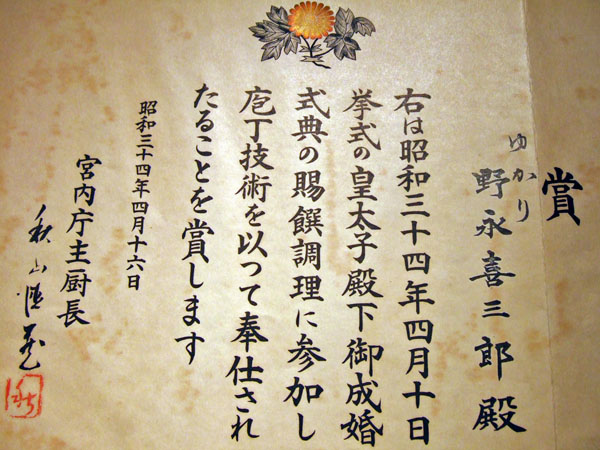 賞
ゆかり
野永喜三郎殿
右は昭和三十四年四月十日
挙式の皇太子殿下御成婚
式典の賜饌調理に参加し
庖丁技術を以つて奉仕され
たることを賞します
昭和三十四年四月十六日
宮内庁主厨長
秋山